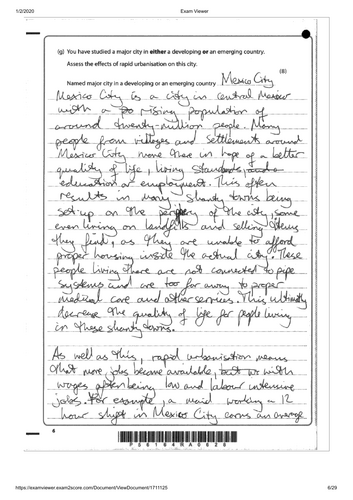 1/2/2020
Exam Viewer
(g) You have studied a major city in either a developing or an emerging country.
Assess the effects of rapid urbanisation on this city.
(8)
Named major city in a developing or an emerging country Mexico City
Mexico City is a city in central Mexico
with a rising population of
around twenty-million people. Many
people from villages and settlements around
Mexico City move there in hope of a better
quality of life, living standards,
education or employment. This often
results in many shanty towns being
set up on the periphery of the city, some
even living on landfills and selling items
they find, as they are unable to afford
proper housing inside the actual city. These
people living there are not connected to pipe
systems and are too far away to proper
medical care and other services. This ultimatly
decrease the quality of life for people living
in these shanty towns.
As well as this, rapid urbanisation means
that more jobs become available, but with
wages often being low and labour intensive
jobs. For example, a maid working a 12
hour shift in Mexico City earns an average
6
https://examviewer.exam2score.com/Document/ViewDocument/1711125
6/29